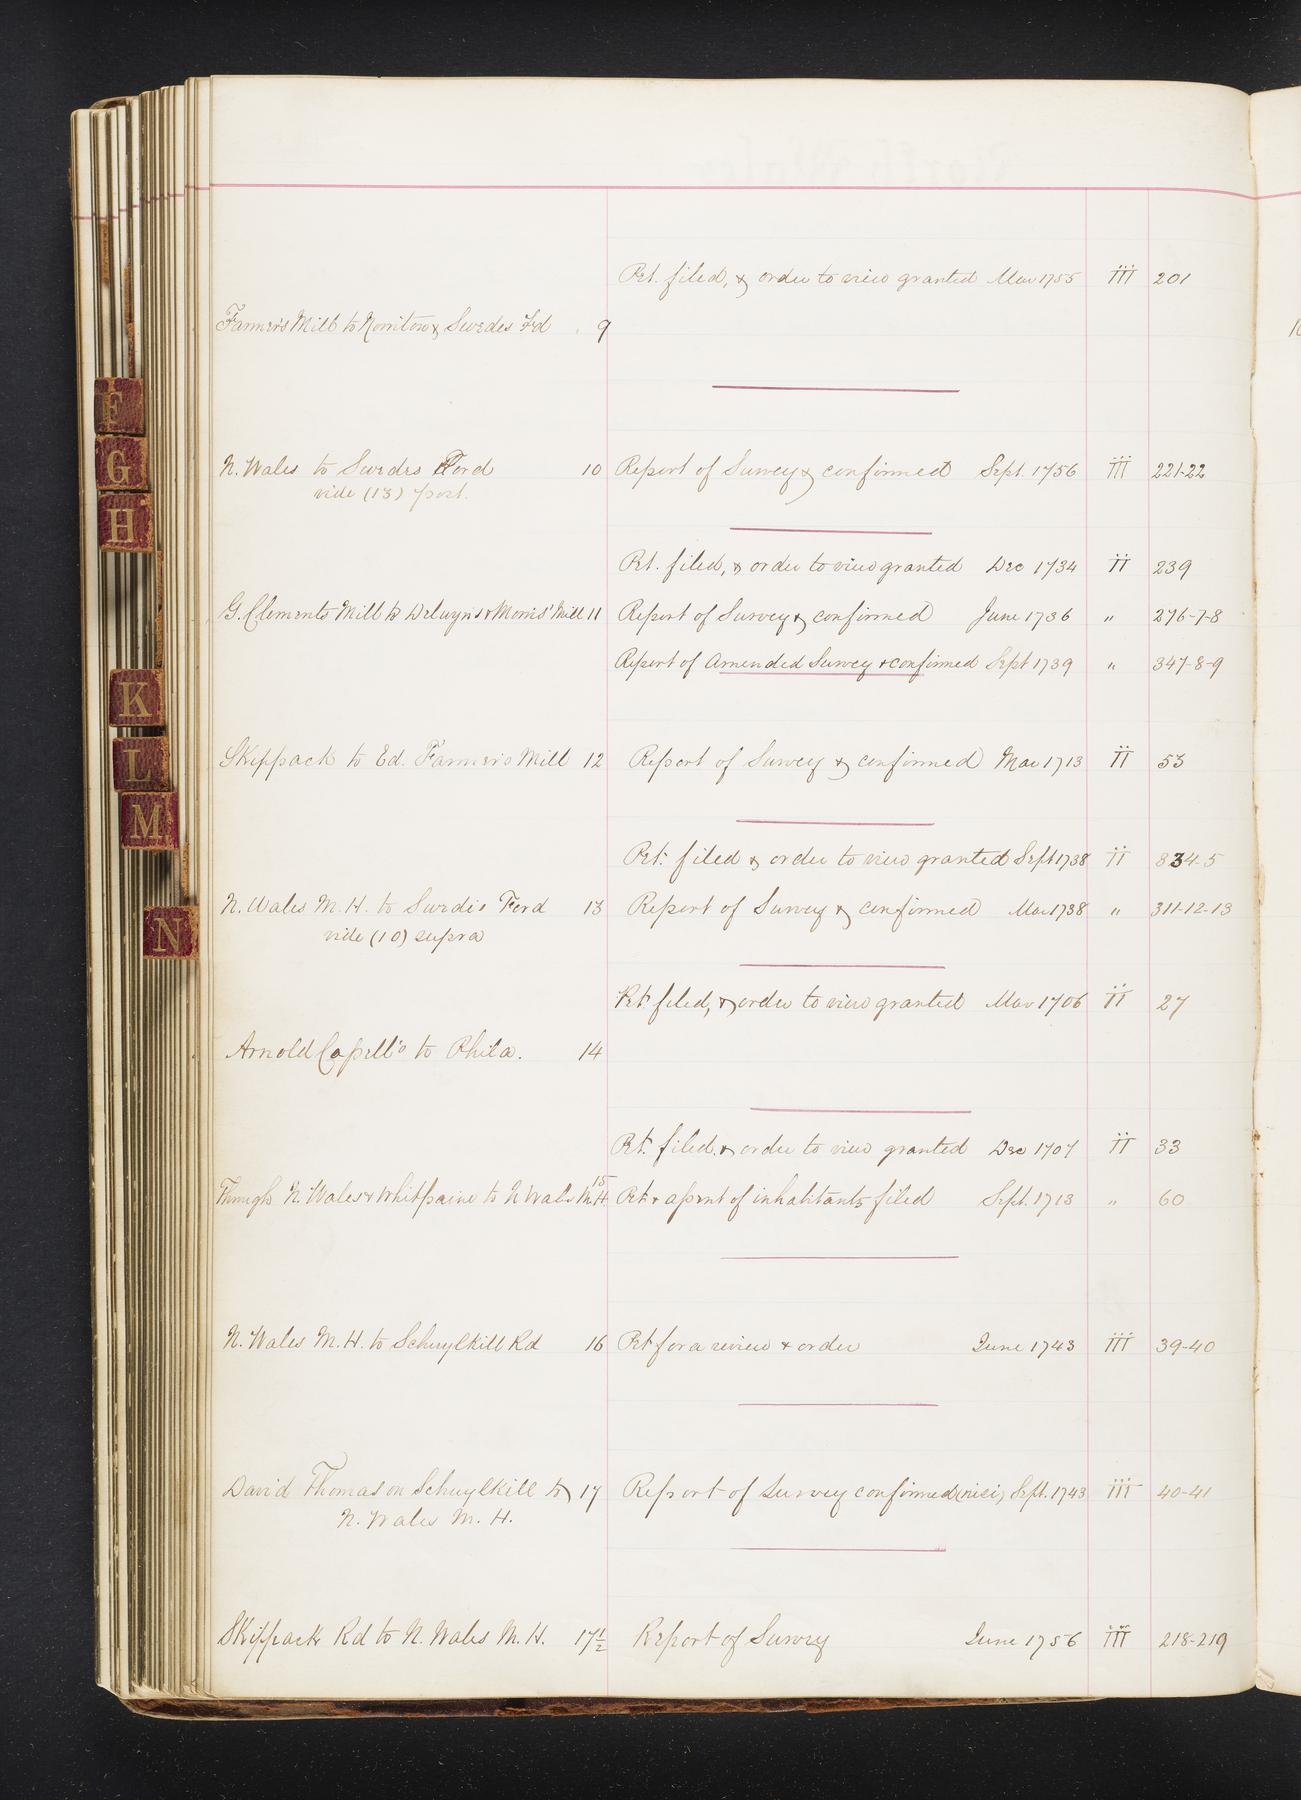 Pet. filed, & order to view granted Mar 1755 iii 201
Farmer's Mill to Norriton & Swedes Fd 9
N. Wales to Swedes Ford 10 Report of Survey & confirmed Sept. 1756 iii 221-22
vide (13) post.
Pet. filed, & order to view granted Dec 1734 ii 239
G. Clements Mill to Delwyns & Morris' Mill 11 Report of Survey & confirmed June 1736 " 276-7-8
Report of Amended Survey & confirmed Sept 1739 " 347-8-9
Skippack to Ed. Farmer's Mill 12 Report of Survey & confirmed Mar 1713 ii 53
Pet. filed & order to view granted Sept 1738 ii 334-5
N. Wales M. H. to Swedes Ford 13 Report of Survey & confirmed Mar 1738 " 311-12-13
vide (10) supra
Pet. filed, & order to view granted Mar 1706 ii 27
Arnold Capell's to Phila. 14
Pet. filed, & order to view granted Dec 1707 ii 33
Through N. Wales & Whitpaine to N Wales M.H. 15 Pet. & assent of inhabitants filed Sept. 1713 " 60
N. Wales M. H. to Schuylkill Rd 16 Pet for a review & order June 1743 iii 39-40
David Thomas on Schuylkill to 17 Report of Survey confirmed (nisi) Sept. 1743 iii 40-41
N. Wales M. H.
Skippack Rd to N. Wales M. H. 17½ Report of Survey June 1756 iii 218-219
F
G
H
K
L
M
N